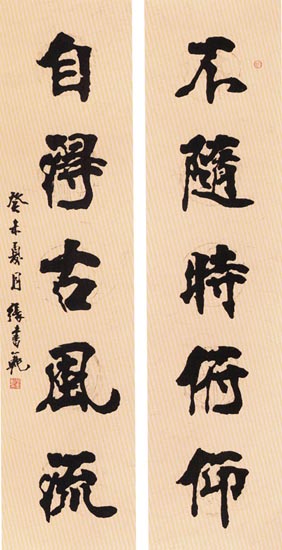 不隨時俯仰
自得古風流
癸未夏月張書範